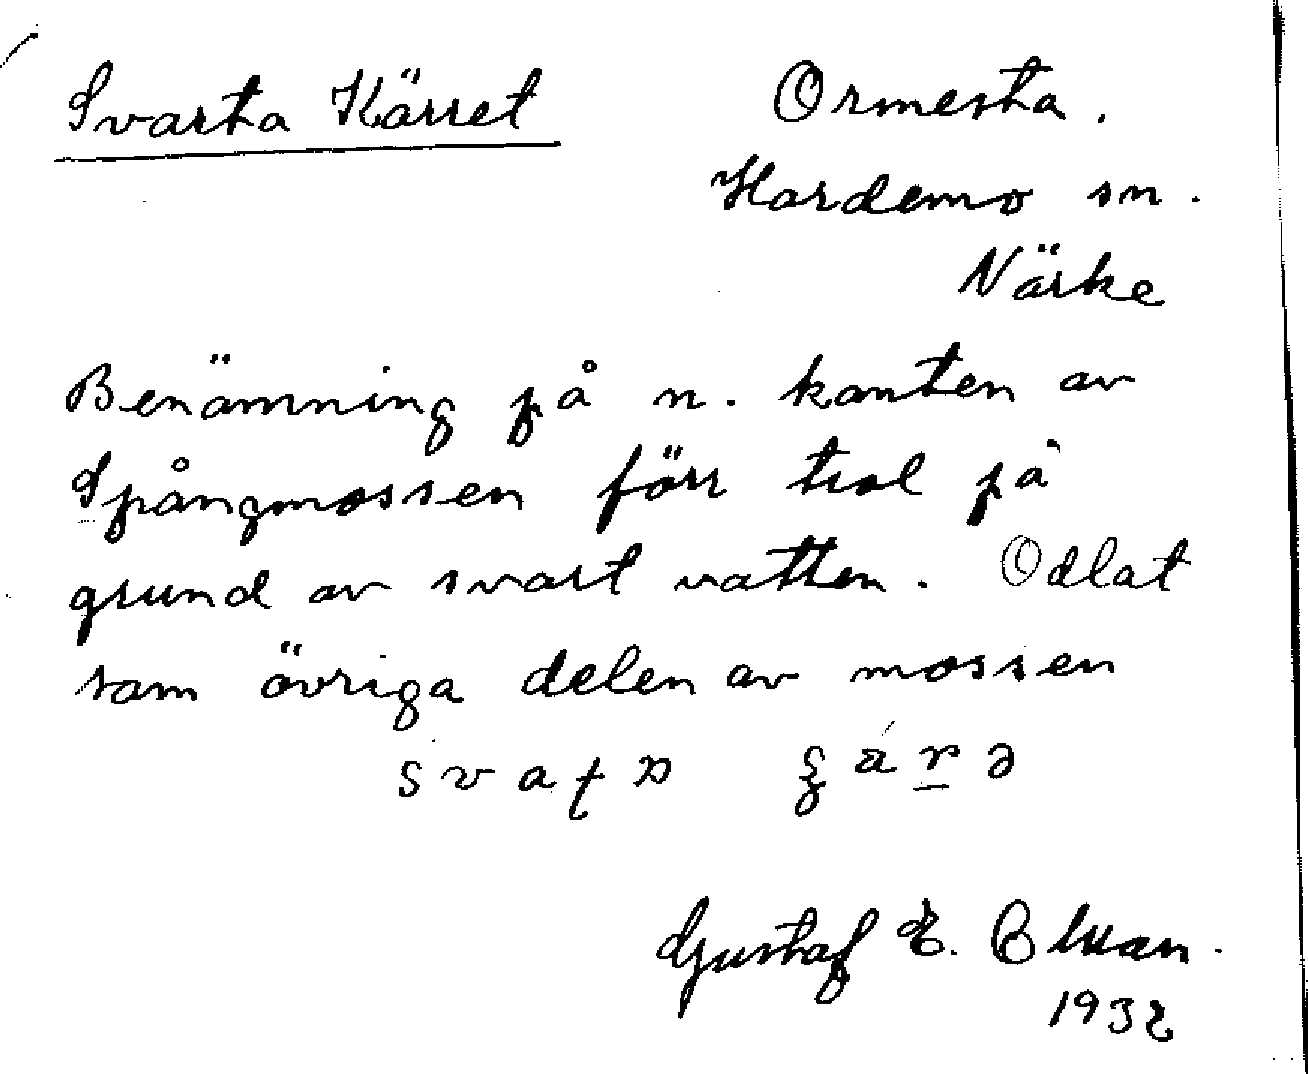 Svarta Kärret
Ormesta.
Hardemo sn.
Närke
Benämning på n. kanten av
Spångmossen förr trol på
grund av svart vatten. Odlat
som övriga delen av mossen
Gustaf E.
1932